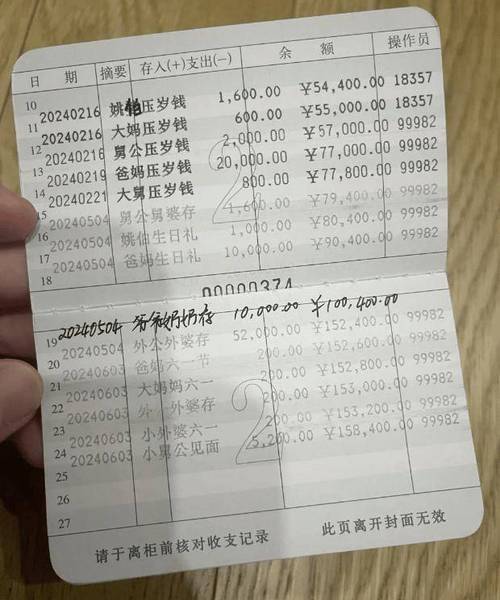 日 期 摘要 存入(+)支出(-) 余 额 操作员
10 20240216 姚伯压岁钱 1,600.00 ¥54,400.00 18357
11 20240216 大妈压岁钱 600.00 ¥55,000.00 18357
12 20240216 舅公压岁钱 2,000.00 ¥57,000.00 99982
13 20240219 爸妈压岁钱 20,000.00 ¥77,000.00 99982
14 20240221 大舅压岁钱 800.00 ¥77,800.00 99982
15 20240504 舅公舅婆存 1,600.00 ¥79,400.00 99982
16 20240504 姚伯生日礼 1,000.00 ¥80,400.00 99982
17 20240504 爸妈生日礼 10,000.00 ¥90,400.00 99982
18
00000374
19 20240504 爷爷奶奶存 10,000.00 ¥100,400.00
20 20240504 外公外婆存 52,000.00 ¥152,400.00 99982
21 20240603 爸妈六一节 200.00 ¥152,600.00 99982
22 20240603 大妈妈六一 200.00 ¥152,800.00 99982
23 20240603 外 外婆存 200.00 ¥153,000.00 99982
24 20240603 小外婆六一 200.00 ¥153,200.00 99982
25 20240603 小舅公见面 5,200.00 ¥158,400.00 99982
26
27
2
2
请于离柜前核对收支记录 此页离开封面无效